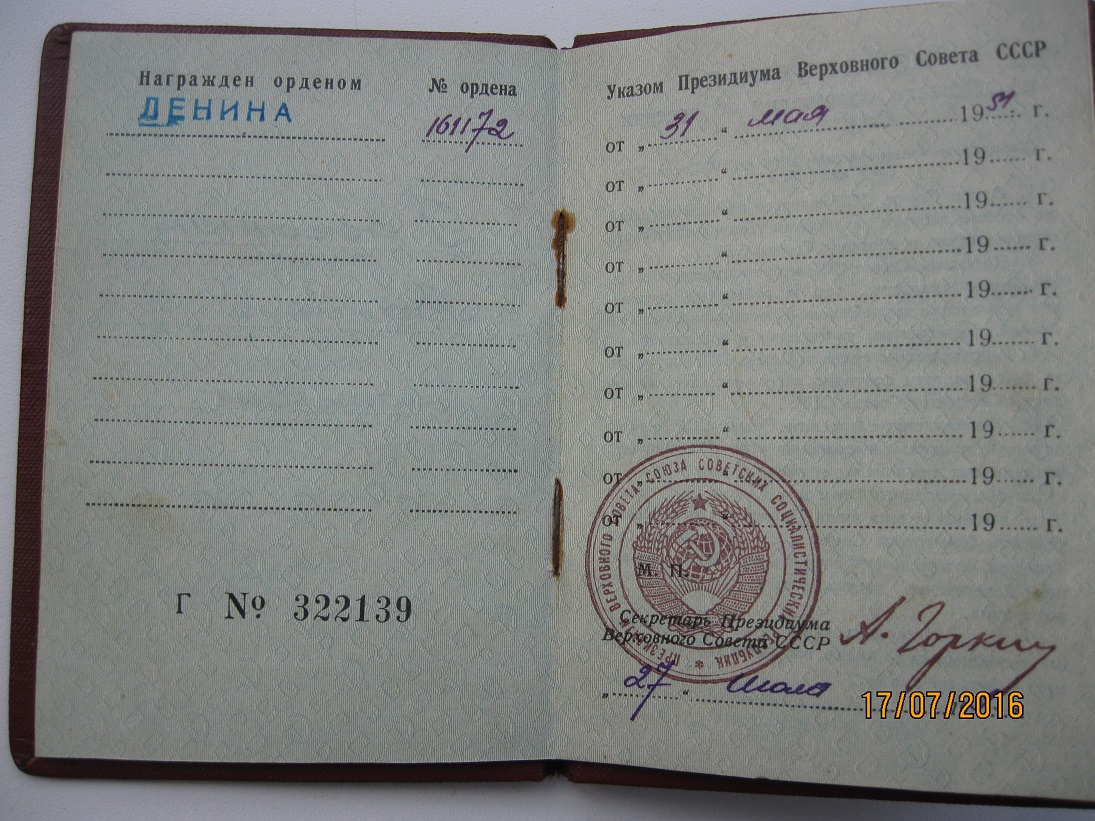 Награжден орденом
№ ордена
ЛЕНИНА
161172
Г № 322139
Указом Президиума Верховного Совета СССР
от „ 31 “ мая 1951 г.
от „ “ 19 г.
от „ “ 19 г.
от „ “ 19 г.
от „ “ 19 г.
от „ “ 19 г.
от „ “ 19 г.
от „ “ 19 г.
от „ “ 19 г.
от „ “ 19 г.
ПРЕЗИДИУМ ВЕРХОВНОГО СОВЕТА СОЮЗА СОВЕТСКИХ СОЦИАЛИСТИЧЕСКИХ РЕСПУБЛИК
М. П.
Секретарь Президиума
Верховного Совета СССР
А. Горкин
„ 27 “ июля
17/07/2016